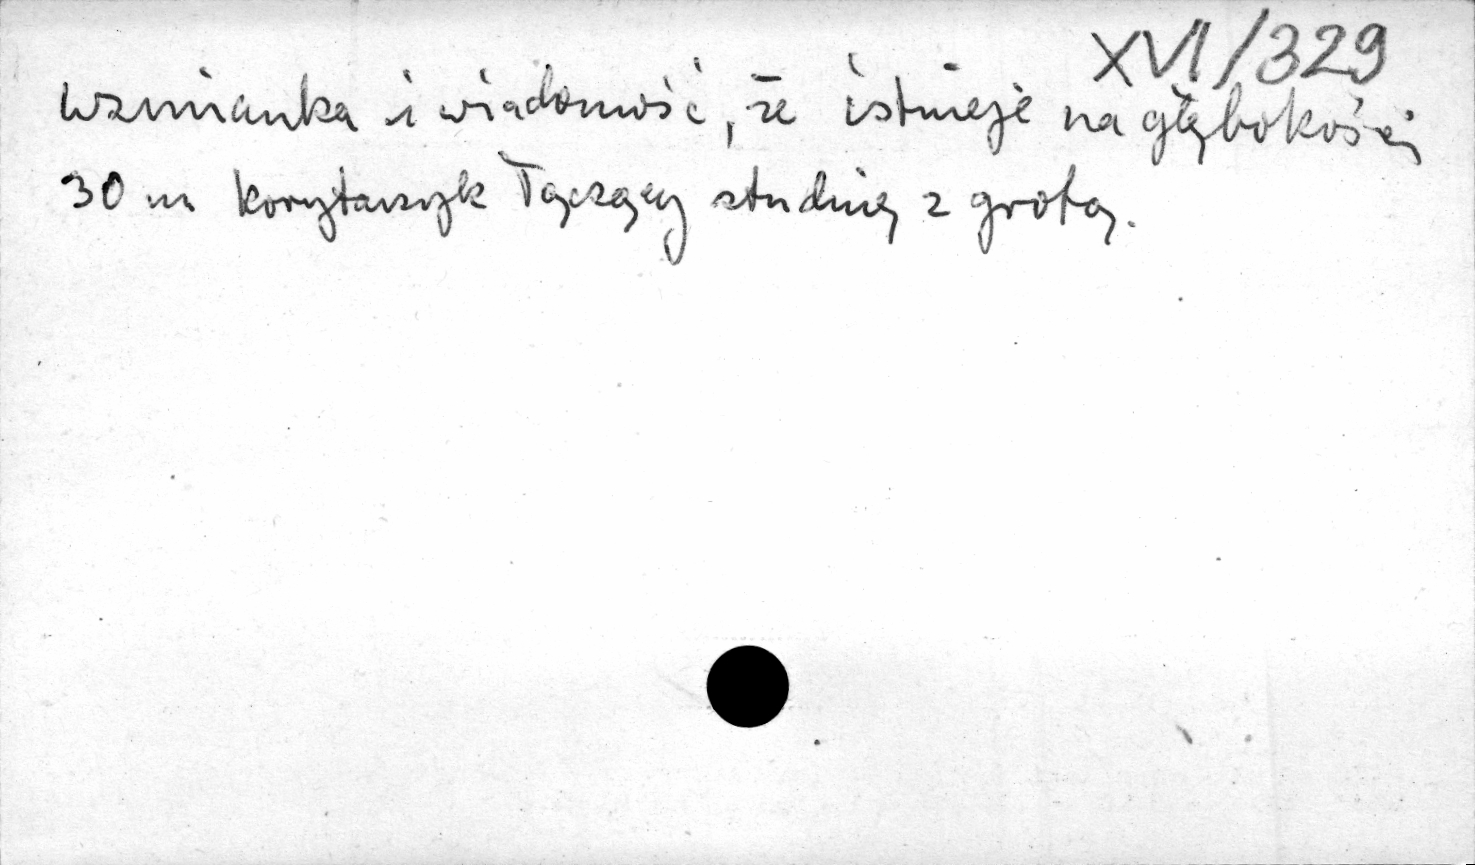 XVI/329
wzmianka i wiadomość, że istnieje na głębokości
30 m korytarzyk łączący studnię z grotą.